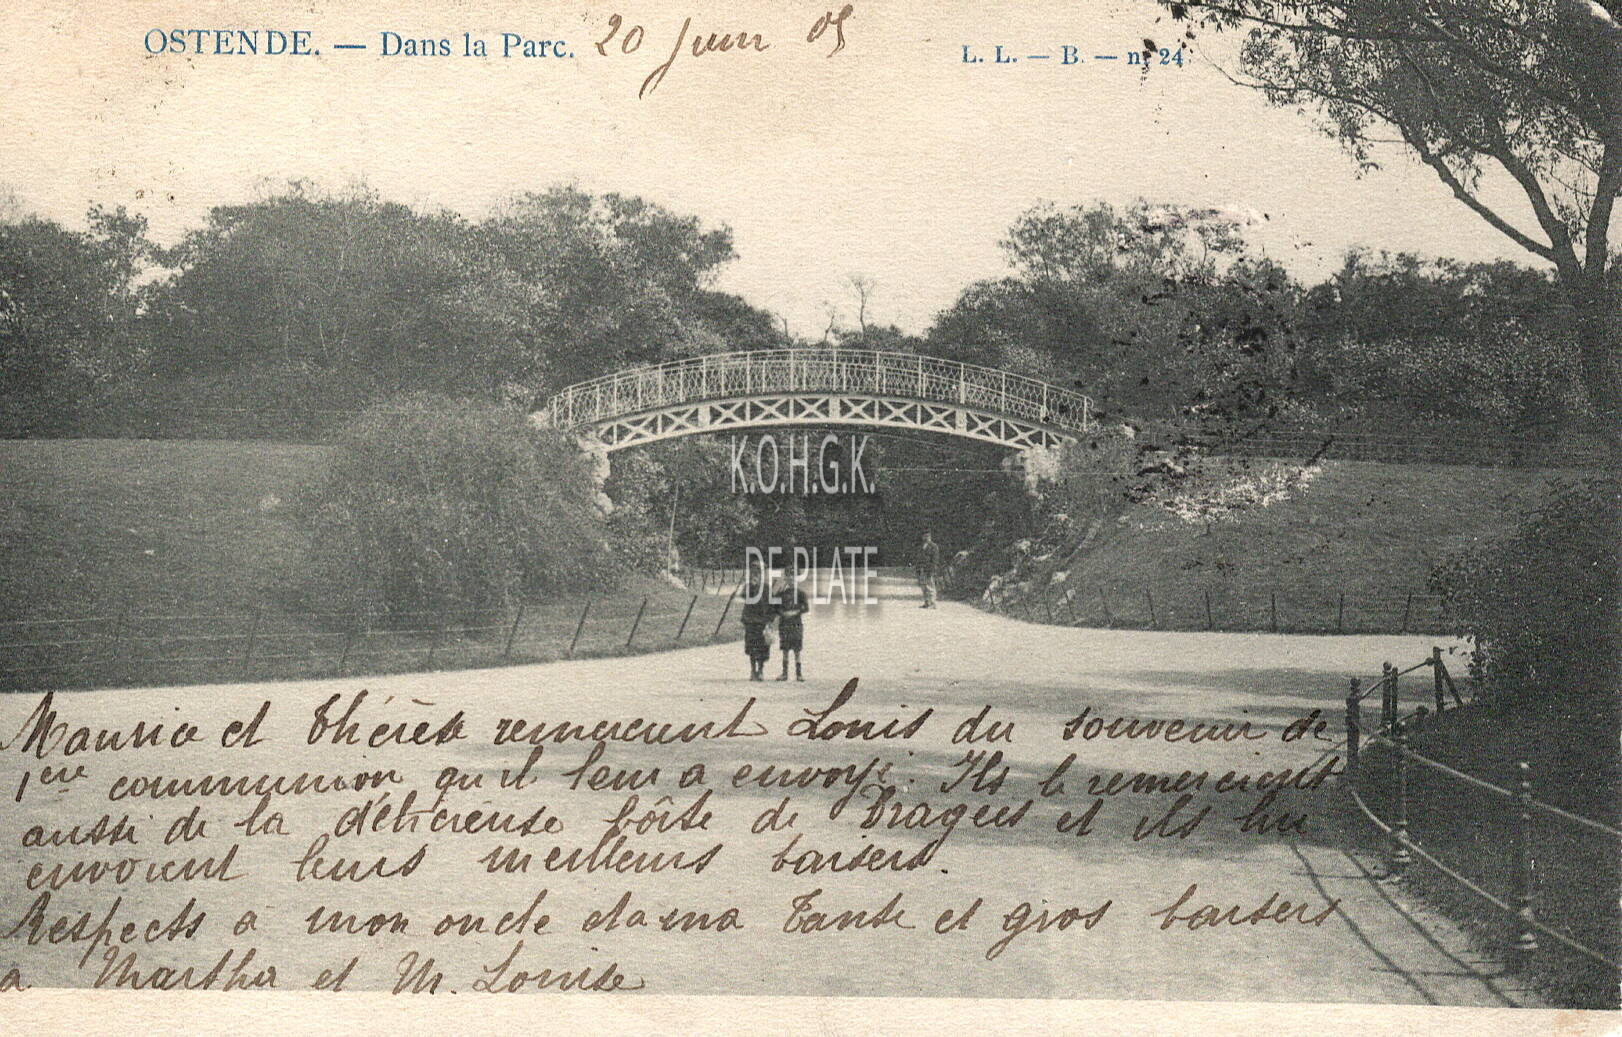 OSTENDE. — Dans la Parc. 20 Juin 05
L. L. — B. — nº 24
K.O.H.G.K.
DE PLATE
Maurice et Thérèse remercient Louis du souvenir de
1ère communion qu'il leur a envoyé. Ils le remercient
aussi de la délicieuse boîte de Dragées et ils lui
envoient leurs meilleurs baisers.
Respects à mon oncle et à ma Tante et gros baisers
à Martha et M. Louise